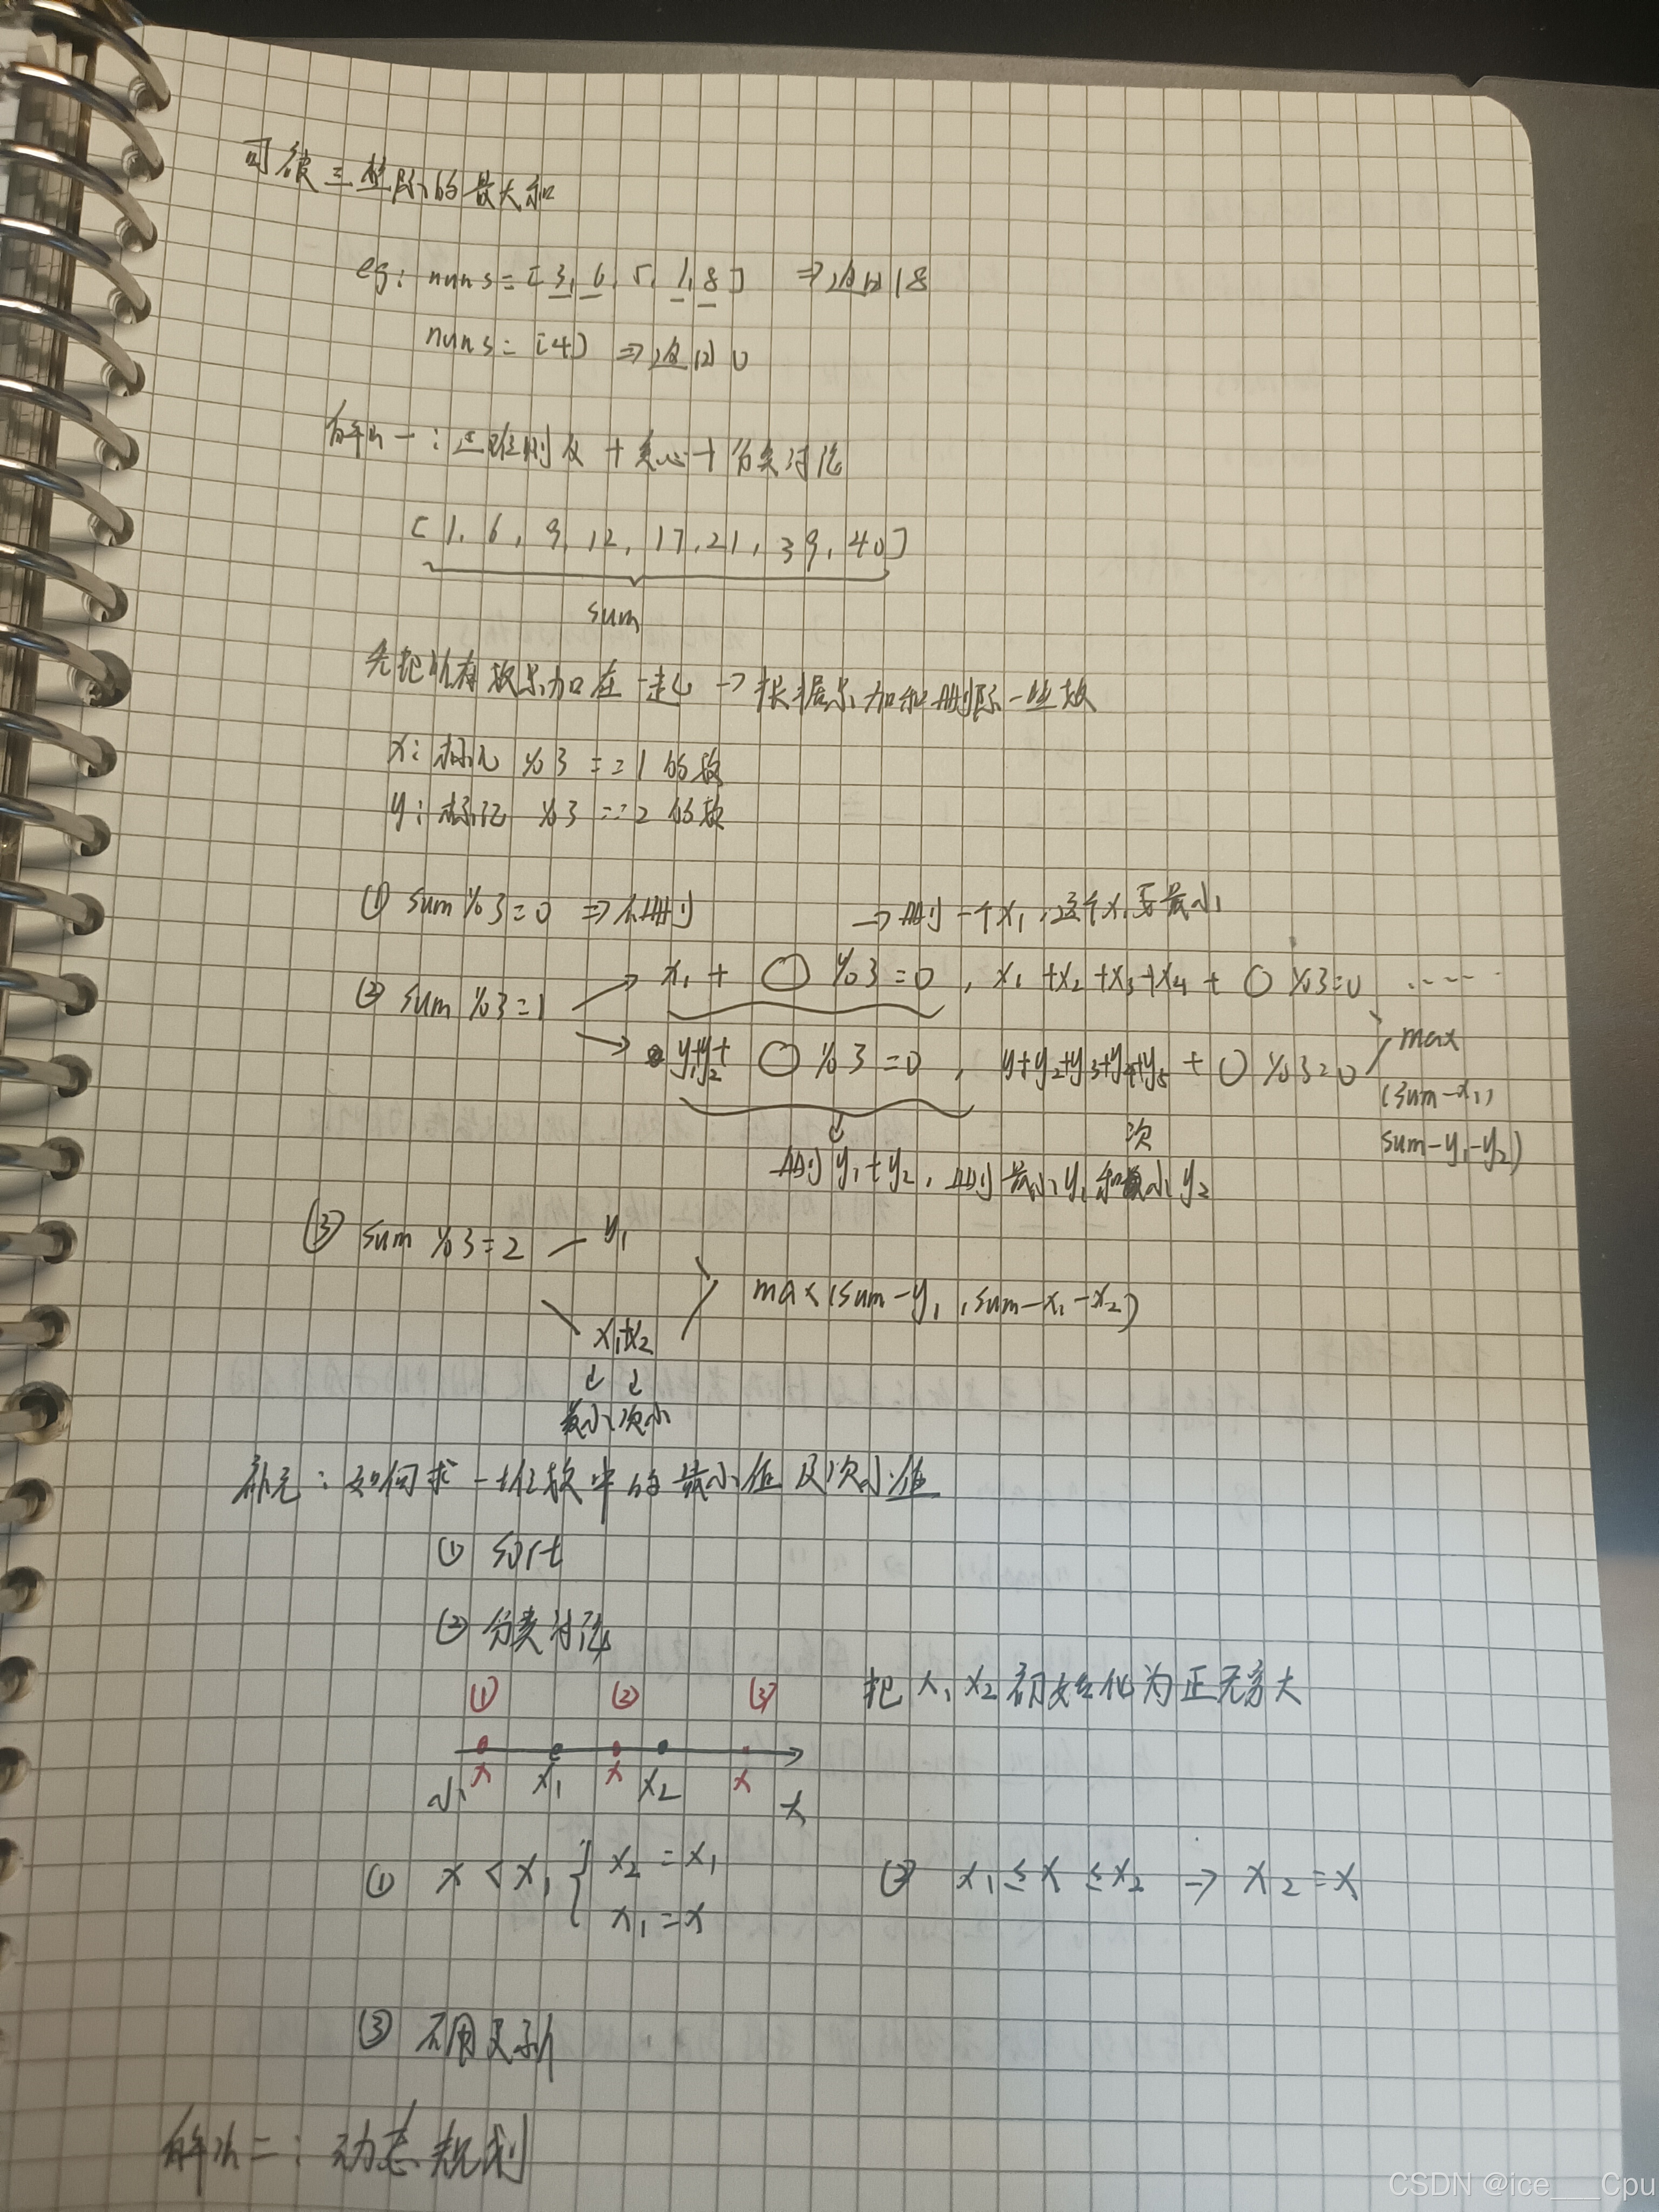 可被三整除的最大和
eg: nums = [3, 6, 5, 1, 8] ⇒ 返回 18
nums = [4] ⇒ 返回 0
解法一：正难则反 + 贪心 + 分类讨论
[1, 6, 9, 12, 17, 21, 39, 40]
sum
先把所有数累加在一起 → 根据累加和删除一些数
x: 标记 %3 == 1 的数
y: 标记 %3 == 2 的数
① sum %3 = 0 ⇒ 不删
→ 删一个x₁，这个x₁要最小
② sum %3 = 1
x₁ + ○ %3 = 0 , x₁ + x₂ + x₃ + x₄ + ○ %3 = 0 ......
y₁+y₂+ ○ %3 = 0 , y+y₂+y₃+y₄+y₅ + ○ %3 = 0
max
(sum-x₁,
sum-y₁-y₂)
删 y₁+y₂ , 删最小y₁和次小y₂
③ sum %3 = 2 — y₁
max(sum-y₁, sum-x₁-x₂)
x₁+x₂
↓ ↓
最小 次小
补充：如何求一堆数中的最小值及次小值
① sort
② 分类讨论
① ② ③
把 x₁ x₂ 初始化为正无穷大
小 x x₁ x x₂ x 大
① x < x₁ { x₂ = x₁
x₁ = x
② x₁ ≤ x ≤ x₂ → x₂ = x
③ 不用更新
解法二：动态规划
CSDN @ice___Cpu